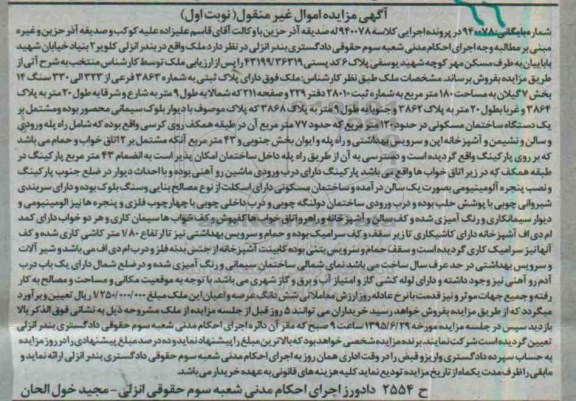 آگهی مزایده اموال غیر منقول (نوبت اول)
شماره بایگانی: ۹۴۰۰۷۸ در پرونده اجرایی کلاسه ۹۴۰۰۷۸ له صدیقه آذر حزین با وکالت آقای قاسم علیزاده علیه کوکب و صدیقه آذر حزین و غیره
مبنی بر مطالبه وجه اجرای احکام مدنی شعبه سوم حقوقی دادگستری بندر انزلی در نظر دارد ملک واقع در بندر انزلی کلویر ۲ بنیاد خیابان شهید
بابایان به طرف مسکن مهر کوچه شهید یوسفی پلاک ۶ کد پستی ۴۳۱۹۹/۳۶۳۱۹ را پس از ارزیابی ملک توسط کارشناس منتخب به شرح آتی از
طریق مزایده بفروش برساند. مشخصات ملک طبق نظر کارشناس: ملک فوق دارای پلاک ثبتی به شماره ۳۸۶۳ فرعی از ۳۲۳ الی ۳۳۰ سنگ ۱۴
بخش ۷ گیلان به مساحت ۱۸۰ متر مربع به شماره ثبت ۲۸۰۱۰ دفتر ۲۲۹ و صفحه ۲۱۱ که شمالا به طول ۹ متر به شارع و شرقا به طول ۲۰ متر به پلاک
۳۸۶۴ و غربا بطول ۲۰ متر به پلاک ۳۸۶۲ و جنوبا به طول ۹ متر به پلاک ۳۸۶۸ که پلاک موصوف با دیوار بلوک سیمانی محصور بوده و مشتمل بر
یک دستگاه ساختمان مسکونی در حدود ۱۲۰ متر مربع که حدود ۷۷ متر مربع آن در طبقه همکف روی کرسی واقع بوده که شامل راه پله ورودی
و سالن و نشیمن و آشپزخانه اپن و سرویس بهداشتی و راه پله و ایوان بخش جنوبی و ۴۳ متر مربع آنکه مشتمل بر ۲ اتاق خواب و حمام می باشد
که بر روی پارکینگ واقع گردیده است و دسترسی به آن از طریق راه پله داخل ساختمان امکان پذیر است به انضمام ۴۳ متر مربع پارکینگ در
طبقه همکف که در زیر اتاق خواب ها واقع می باشد پارکینگ دارای درب ورودی ماشین رو آهنی بوده و با احداث دیوار در ضلع جنوب پارکینگ
و نصب پنجره آلومینیومی بصورت یک سالن در آمده و ساختمان مسکونی دارای اسکلت از نوع مصالح بنایی و سنگ بلوک بوده و دارای سربندی
شیروانی چوبی با پوشش حلب بوده و درب ورودی ساختمان دولنگه چوبی و درب داخلی چوبی با چهارچوب فلزی و پنجره ها نیز آلومینیومی و
دیوار سیمانکاری و رنگ آمیزی شده و کف سالن و آشپزخانه و راهرو و اتاق خواب ها کفپوش و کف خواب ها سیمان کاری و هر دو خواب دارای کمد
ام دی اف آشپزخانه دارای کاشیکاری تا زیر سقف و کف سرامیک بوده و حمام و سرویس بهداشتی نیز تا ارتفاع ۱/۸۰ متر کاشی کاری شده و کف
آنها نیز سرامیک کاری گردیده است و سقف حمام و سرویس بتنی بوده کابینت آشپزخانه از جنس بدنه فلز و درب ام دی اف می باشد و شیرآلات
و سرویس بهداشتی در حد عرف سال ساخت می باشد نمای شمالی ساختمان سیمانی و رنگ آمیزی شده و در ضلع شمال دارای یک باب درب
آدم رو آهنی نیز وجود داشته و دارای لوله کشی گاز و امتیاز آب و برق و گاز شهری می باشد. با توجه به موقعیت مکانی و مساحت و مصالح به کار
رفته و جمیع جهات موثر و نیز قدمت بنا نرخ عادله روز ارزش معاملاتی شش دانگ عرصه و اعیان این ملک مبلغ ۱/۲۵۰/۰۰۰/۰۰۰ ریال تعیین و برآورد
میگردد که از طریق مزایده بفروش خواهد رسید خریداران می توانند ۵ روز قبل از جلسه مزایده از ملک مشروحه ذیل به نشانی فوق الذکر بالا
بازدید سپس در جلسه مزایده مورخه ۱۳۹۵/۶/۲۹ ساعت ۹ صبح که مقر آن دایره اجرای احکام مدنی شعبه سوم حقوقی دادگستری بندر انزلی
تعیین گردیده است شرکت نمایند. برنده مزایده شخصی خواهد بود که بالاترین مبلغ را پیشنهاد نماید و ده درصد مبلغ پیشنهادی را در روز مزایده
به حساب سپرده دادگستری واریز و قبض را در وقت اداری همان روز به اجرای احکام مدنی شعبه سوم حقوقی دادگستری بندر انزلی ارائه نماید و
مابقی را ظرف مدت یکماه از تاریخ مزایده تودیع نماید کلیه هزینه های قانونی به عهده خریدار می باشد.
ح ۲۵۵۴ دادورز اجرای احکام مدنی شعبه سوم حقوقی انزلی - مجید خول الحان